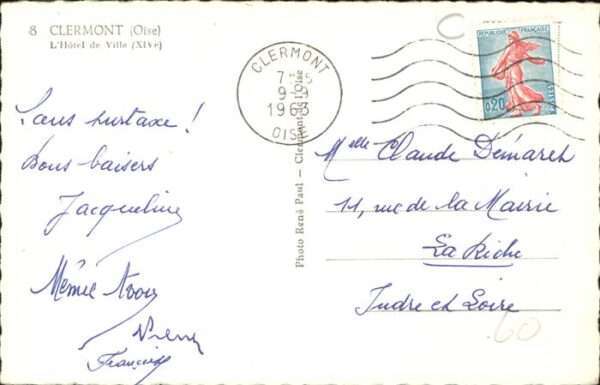 8 CLERMONT (Oise)
L'Hôtel de Ville (XIVe)
Sans surtaxe !
Bons baisers
Jacqueline
Mémée
Francine
CLERMONT
9-9
1963
OISE
REPUBLIQUE FRANÇAISE
0,20
Photo René Paul — Clermont de l'Oise
Melle Claude Démarch
11, rue de la Mairie
La Riche
Indre et Loire
60